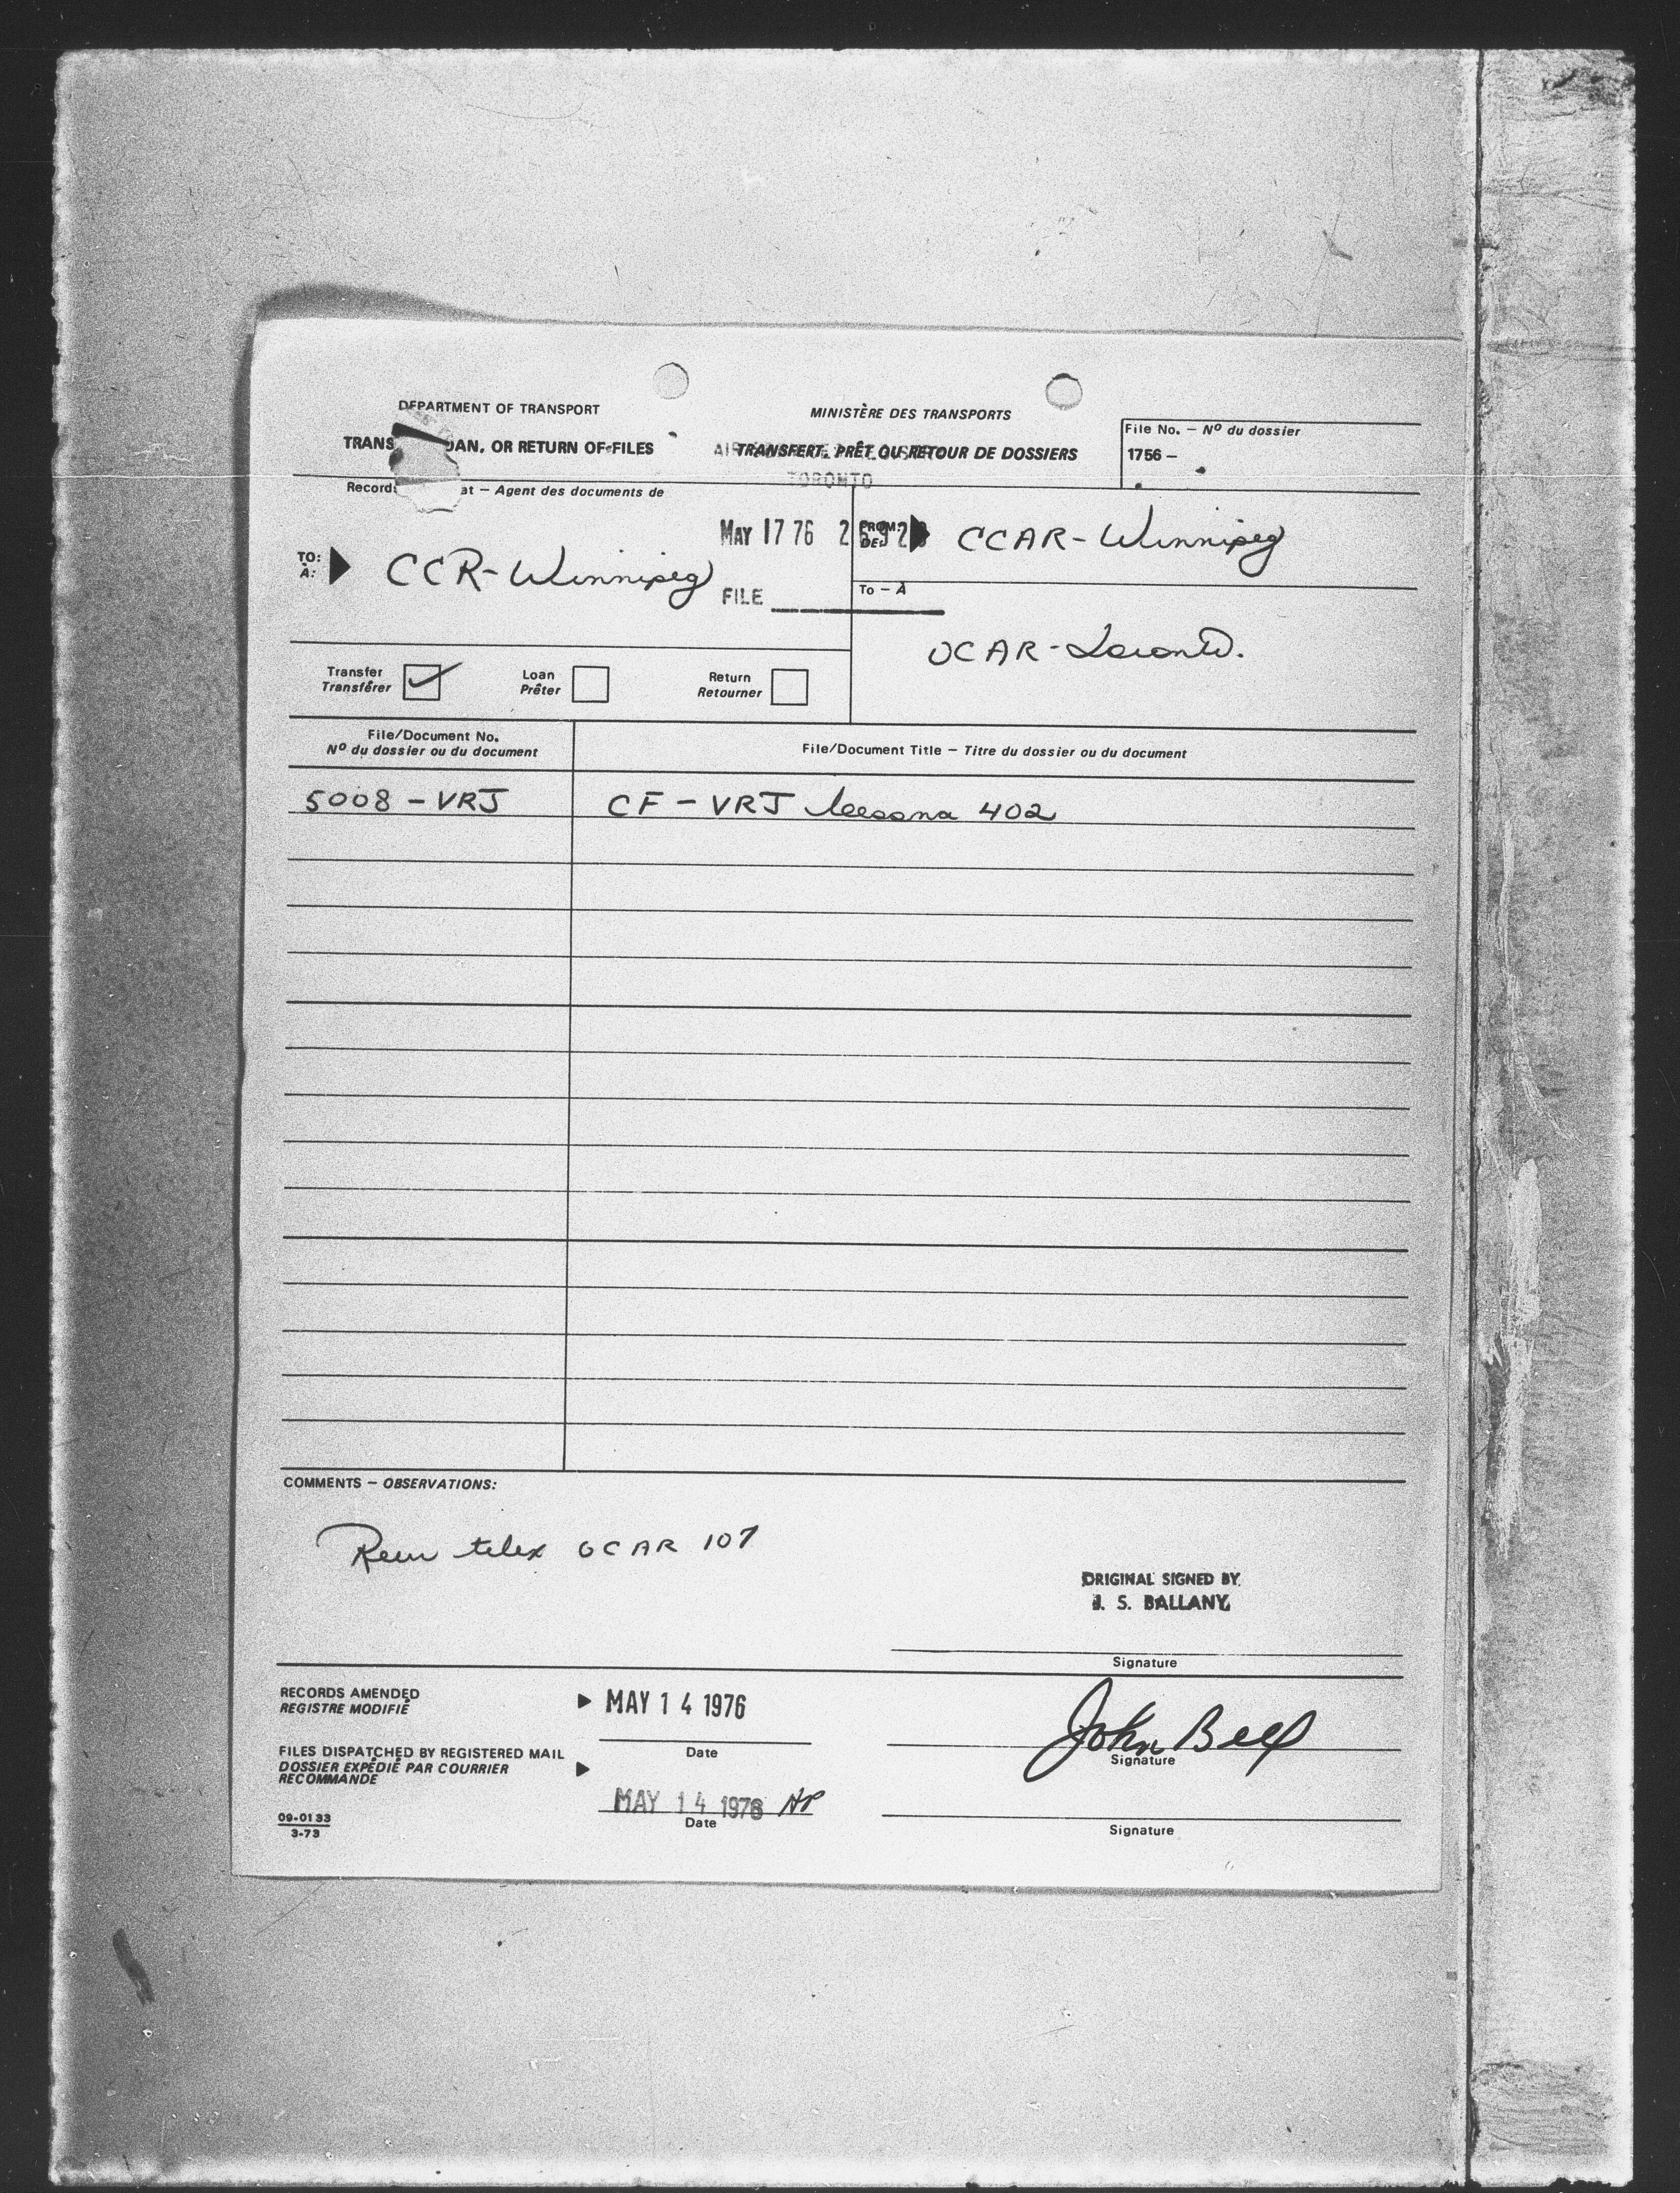 DEPARTMENT OF TRANSPORT
MINISTÈRE DES TRANSPORTS
File No. – Nº du dossier
TRANS OAN, OR RETURN OF FILES
TRANSFERT, PRÊT OU RETOUR DE DOSSIERS
1756 –
TORONTO
Records at – Agent des documents de
MAY 17 76
FROM:
DE:
CCAR-Winnipeg
TO:
À:
CCR-Winnipeg
FILE
To – À
OCAR-Toronto.
Transfer
Transférer
Loan
Prêter
Return
Retourner
File/Document No.
Nº du dossier ou du document
File/Document Title – Titre du dossier ou du document
5008 – VRJ
CF – VRJ Cessna 402
COMMENTS – OBSERVATIONS:
telex OCAR 107
ORIGINAL SIGNED BY
J. S. BALLANY
Signature
RECORDS AMENDED
REGISTRE MODIFIÉ
MAY 14 1976
Date
John Bell
Signature
FILES DISPATCHED BY REGISTERED MAIL
DOSSIER EXPÉDIÉ PAR COURRIER
RECOMMANDE
MAY 14 1976
Date
Signature
09-0133
3-73